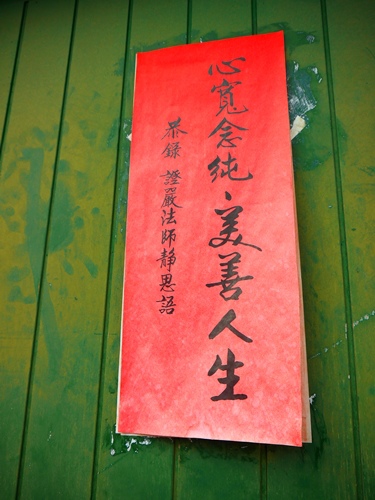 心寬念純、美善人生
恭錄 證嚴法師靜思語